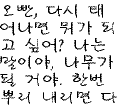 오빤, 다시 태
어나면 뭐가 되
고 싶어? 나는
말이야, 나무가
될 거야. 한번
뿌리 내리면 다